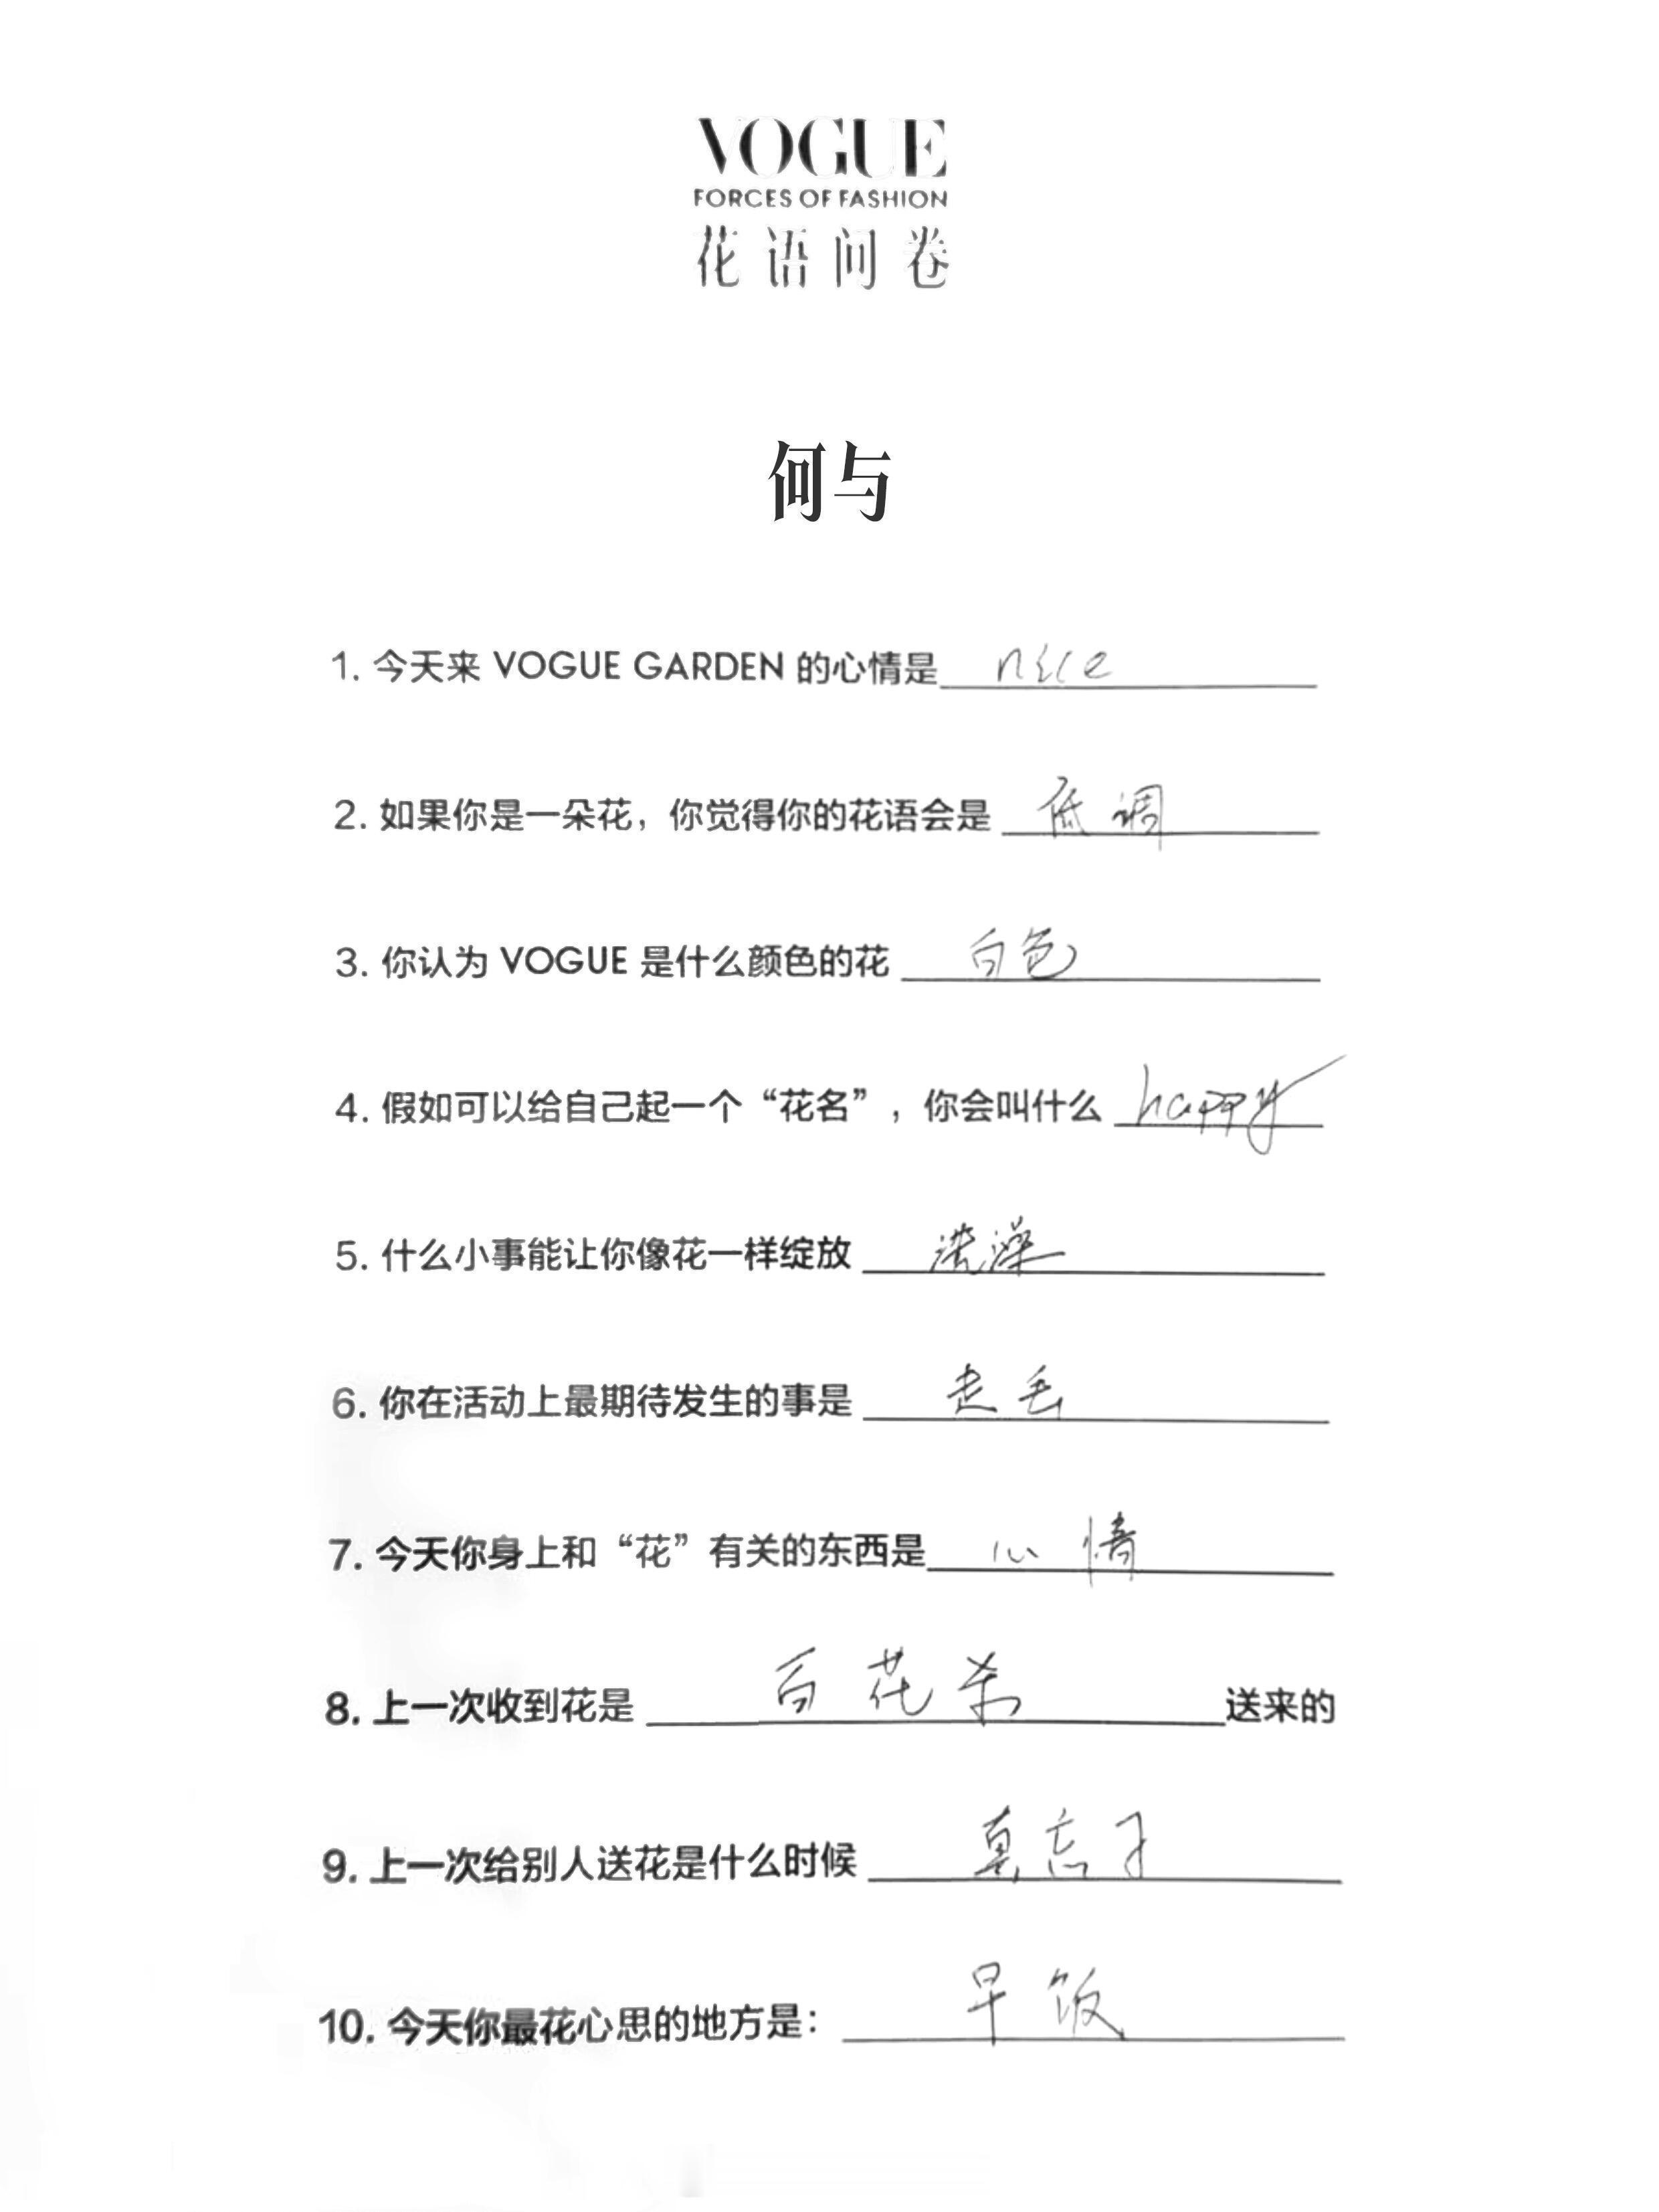 VOGUE
FORCES OF FASHION
花语问卷
何与
1. 今天来 VOGUE GARDEN 的心情是 nice
2. 如果你是一朵花，你觉得你的花语会是 低调
3. 你认为 VOGUE 是什么颜色的花 白色
4. 假如可以给自己起一个“花名”，你会叫什么 happy
5. 什么小事能让你像花一样绽放 洗澡
6. 你在活动上最期待发生的事是 走丢
7. 今天你身上和“花”有关的东西是 心情
8. 上一次收到花是 百花杀 送来的
9. 上一次给别人送花是什么时候 真忘了
10. 今天你最花心思的地方是： 早饭